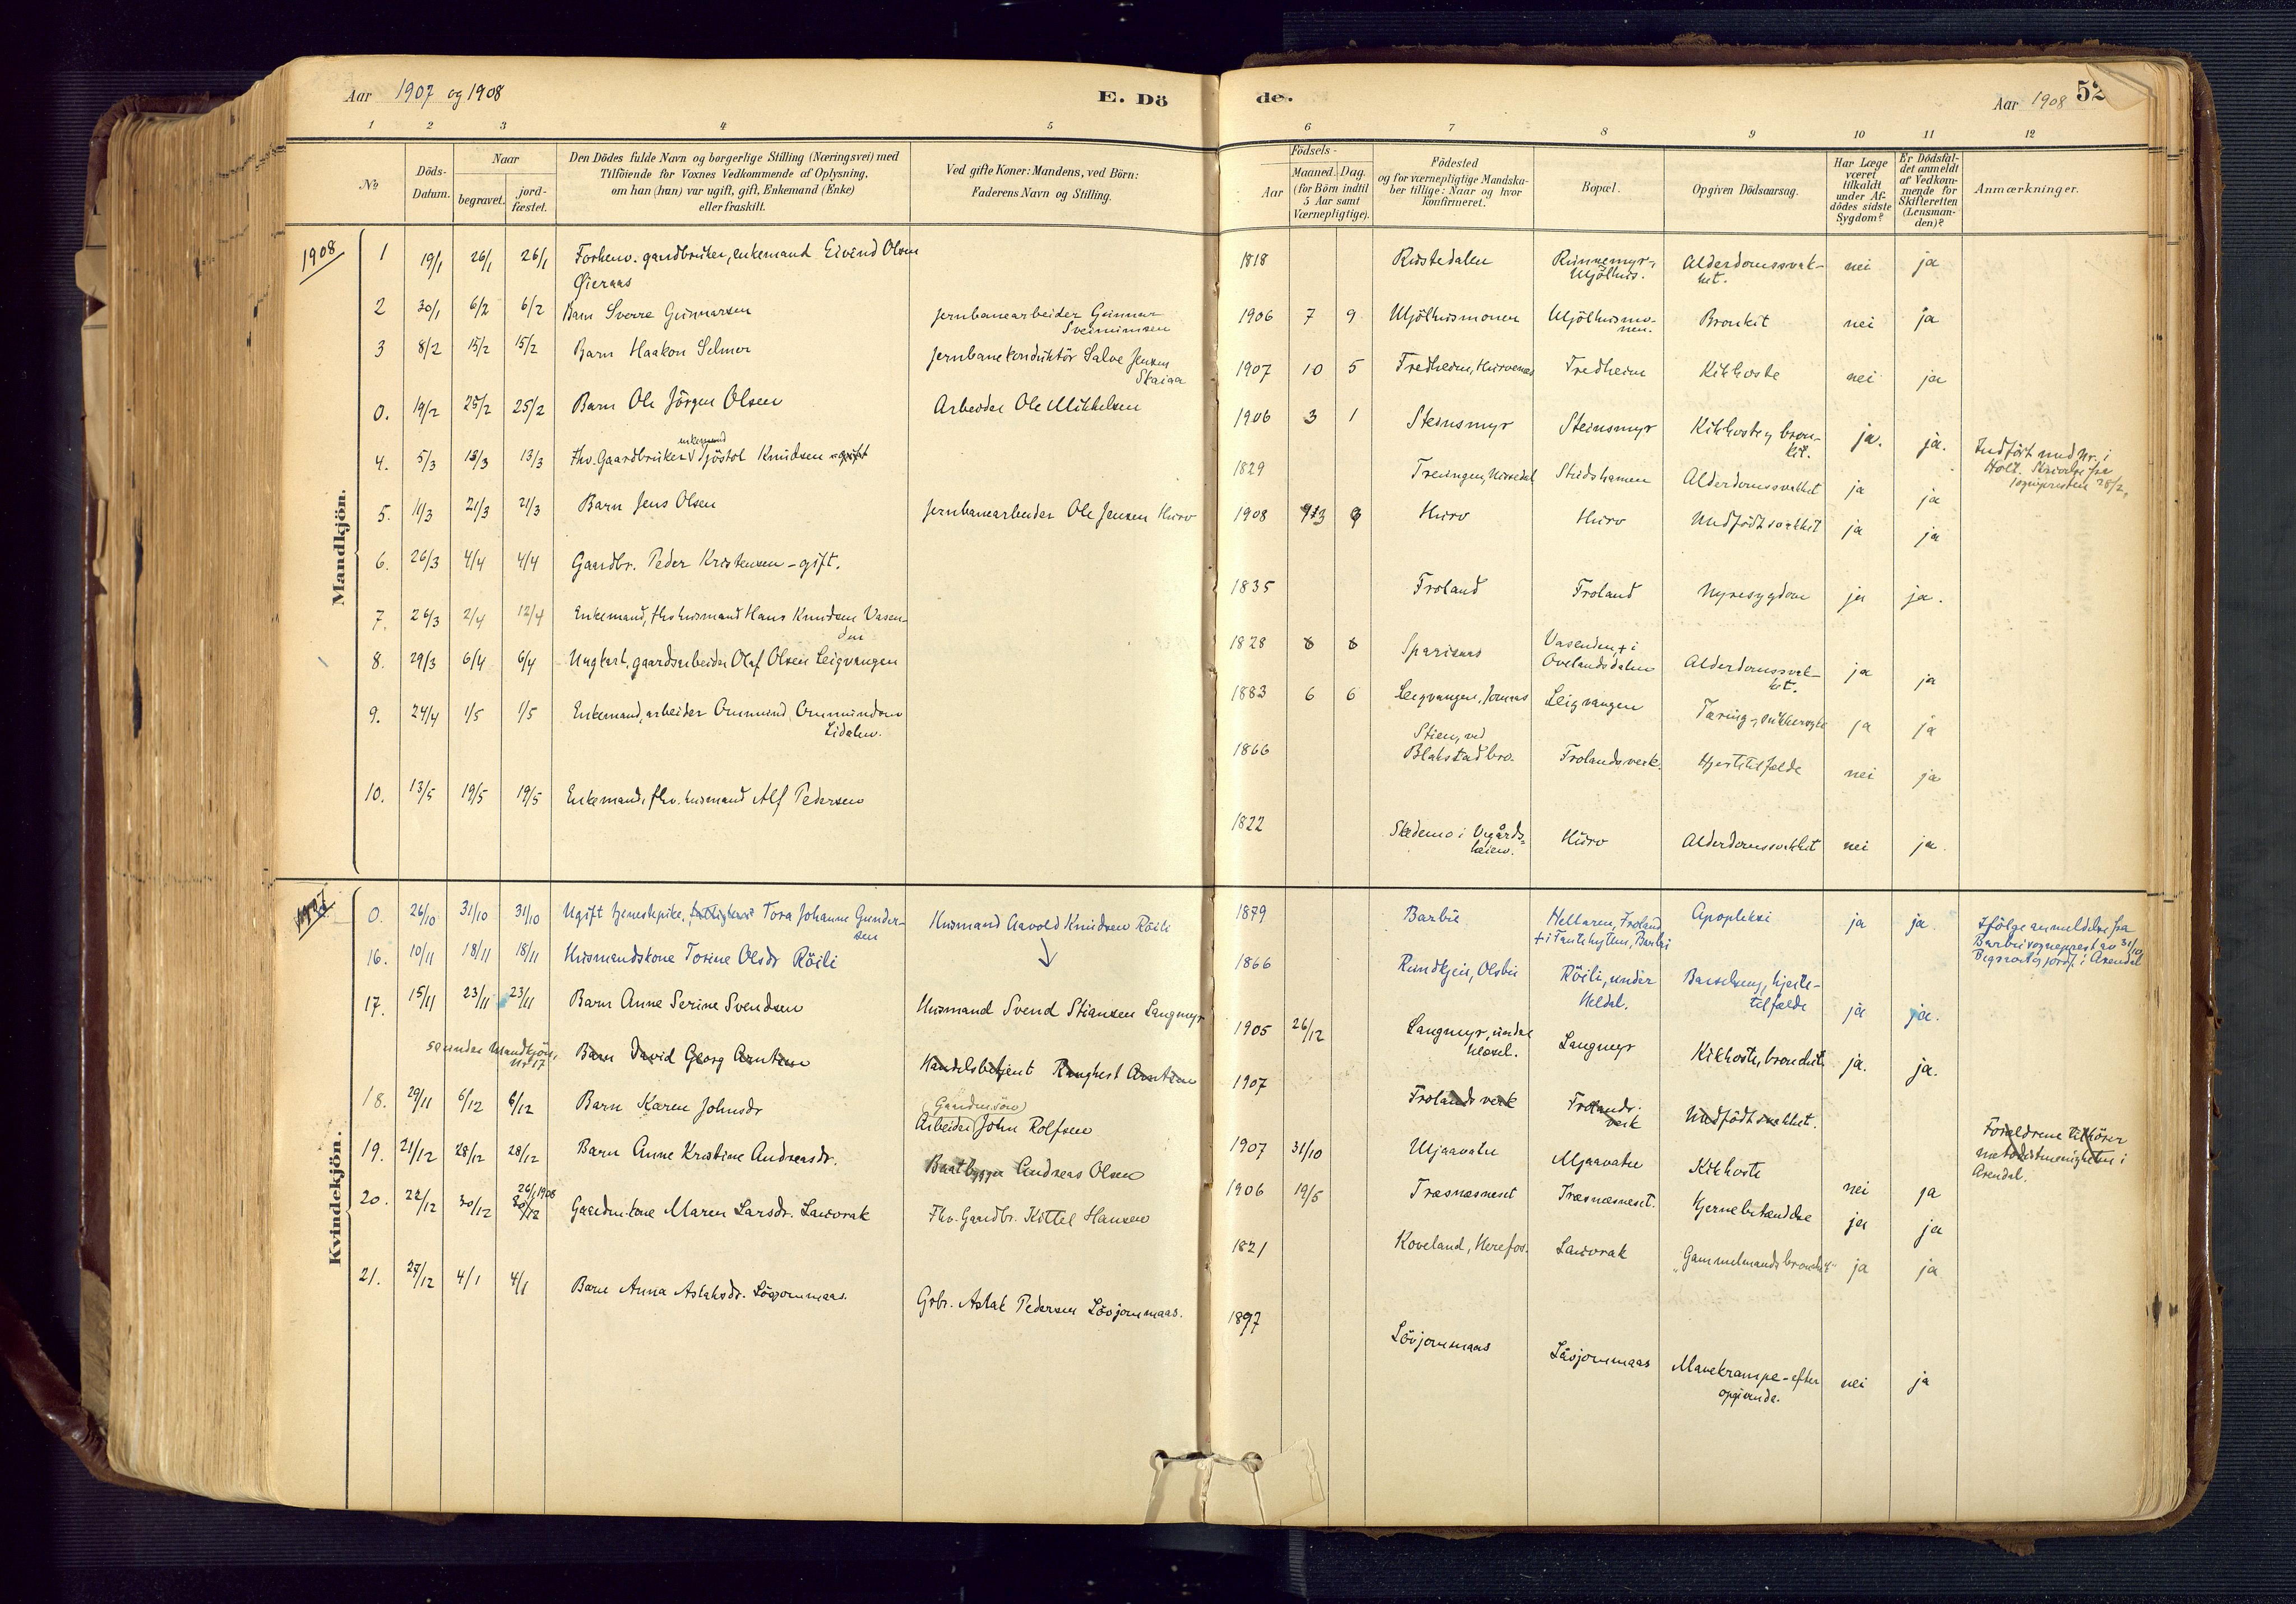 Aar 1907 og 1908
E. Dö
de.
Aar 1908 52
1 2 3 4 5 6 7 8 9 10 11 12
No
Döds-Datum.
Naar
begravet.
jordfæstet.
Den Dödes fulde Navn og borgerlige Stilling (Næringsvei) med
Tilföiende for Voxnes Vedkommende af Oplysning,
om han (hun) var ugift, gift, Enkemand (Enke)
eller fraskilt.
Ved gifte Koner: Mandens, ved Börn:
Faderens Navn og Stilling.
Födsels-
Aar
Maaned. Dag.
(for Börn indtil
5 Aar samt
Værnepligtige).
Födested
og for værnepligtige Mandska-
ber tillige: Naar og hvor
konfirmeret.
Bopæl.
Opgiven Dödsaarsag.
Har Læge
været
tilkaldt
under Af-
dödes sidste
Sygdom?
Er Dödsfal-
det anmeldt
af Vedkom-
mende for
Skifteretten
(Lensman-
den)?
Anmærkninger.
Mandkjön.
1908
1 19/1 26/1 26/1 Forhenv. gaardbruker, enkemand Eivind Olsen
Øieraas
1818 Ristedalen Rinnemyr, Mjölhus. Alderdomssvakhet. nei ja
2 30/1 6/2 6/2 Barn Sverre Gunnarsen jernbanearbeider Gunnar
1906 7 9 Mjölhusmonen Mjölhusmonen. Bronkit nei ja
3 8/2 15/2 15/2 Barn Haakon Selmer Jernbanekonduktör Salve Jensen
Skaiaa
1907 10 5 Fredheim, Hurvenæs Fredheim Kikhoste nei ja
0. 19/2 25/2 25/2 Barn Ole Jörgen Olsen Arbeider Ole Mikkelsen
1906 3 1 Steinsmyr Steinsmyr Kikhoste, bronkit. ja. ja. Indført umd Nr. i
Holt. Skrivelse fra
sognepresten 28/2,
4. 5/3 13/3 13/3 Fhv. Gaardbruker enkemand Tjöstol Knudsen gift
1829 Treungen, Nissedal Alderdomssvakhet ja ja
5. 11/3 21/3 21/3 Barn Jens Olsen Jernbanearbeider Ole Jensen Hurv
1908 Hurv Hurv Medfödt svakhet ja ja
6. 26/3 4/4 4/4 Gaardbr. Peder Kristensen - gift.
1835 Froland Froland Nyresygdom ja ja.
7. 26/3 2/4 12/4 Enkemand, fhv husmand Hans Knudsen Vasen-
den
1828 8 8 Vasenden, + i
Ovelandsdalen Alderdomssvakhet. ja ja
8. 29/3 6/4 6/4 Ungkarl, gaardsarbeider Olaf Olsen Leigvangen
1883 6 6 Leigvangen, Jomaas Leigvangen Tæring, sukkersyke ja ja
9. 24/4 1/5 1/5 Enkemand, arbeider Ommund Ommundsen
Lidalen.
1866 Stien, ved
Blakstadbro. Frolandsverk. Hjertetilfælde nei ja
10. 13/5 19/5 19/5 Enkemand, fhv. husmand Alf Pedersen
1822 Stedemo i Vegårds-
heien. Hurv Alderdomssvakhet nei ja
Kvindekjön.
1907
0. 26/10 31/10 31/10 Ugift tjenestepike, Tora Johanne Gunder-
sen Husmand Aavold Knudsen Röili
1879 Barbu Hellaren, Froland
+ i Fantehytten, Barbu Apopleksi ja ja. Ifölge anmeldelse fra
Barbu sogneprest av 31/10
Begravet og jordf. i Arendal
16. 10/11 18/11 18/11 Husmandskone Torine Olsdr Röili
1866 Rundkjen, Olsbu Röili, under
Heldal. Barselseng, hjerte-
tilfælde ja ja.
17. 15/11 23/11 23/11 Barn Anne Serine Svendsen Husmand Svend Stiansen Langmyr
1905 26/12 Langmyr, under Langmyr Kikhoste, bronchit. ja. ja.
se under Mandkjön,
Nr 17 Barn David Georg Arntsen Handelsbetjent Arntsen
1907 Frolands verk Frolands
verk Medfödt svakhet. Forældrene tilhörer
metodistmenigheten i
Arendal.
18. 29/11 6/12 6/12 Barn Karen Johnsdr (Gaardm.sön)
Arbeider John Rolfsen
1907 31/10 Mjaavatn Mjaavatn Kikhoste nei ja
19. 21/12 28/12 28/12 Barn Anne Kristine Andreasdr. Baatbygger Andreas Olsen
1906 19/5 Træsnæsneset Træsnæsneset. Hjernebetændelse ja ja
20. 22/12 30/12 26/1 1908
30/12 Gaardm.kone Maren Larsdr. Lauvrak Fhv. Gaardbr. Kittel Hansen
1821 Koveland, Herefos. Lauvrak "Gammelmandsbronchit" ja ja
21. 27/12 4/1 4/1 Barn Anna Aslaksdr. Lövjommaas. Grbr. Aslak Pedersen Lövjommaas.
1897 Lövjommaas Lövjommaas Mavekrampe - efter
opgivende. nei ja